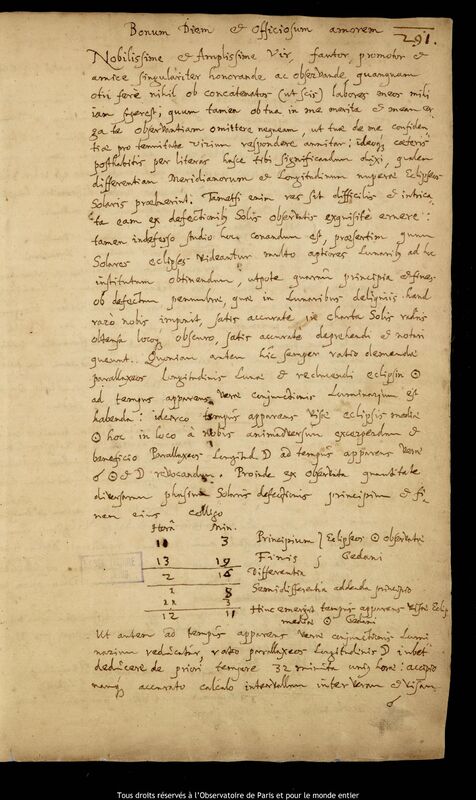 Bonum Diem et Officiosum amorem
291.
Nobilissime et Amplissime Vir, fautor, promotor et
amice singulariter honorande ac observande, quanquam
otii ferè nihil ob concatenatos (ut scis) labores meos mihi
iam superest; quum tamen ob tua in me merita et meam er-
ga te observantiam omittere nequeam, ut tuæ de me confiden-
tiæ pro tenuitate virium respondere annitar: ideoque cæteris
posthabitis per literas hasce tibi significandum duxi, qualem
differentiam Meridianorum et Longitudinum nuperæ Eclipseos
Solaris præbuerint. Tametsi enim res sit difficilis et intrica-
ta eam ex defectionibus Solis observatis exquisitè eruere:
tamen indefesso studio hoc conandum est, præsertim quum
Solares eclipses videantur multo aptiores Lunaribus ad hoc
institutum obtinendum, utpote quarum principia et fines
ob defectum penumbræ, quæ in Lunaribus deliquiis haud
rarò nobis imponit, satis accurate in charta Solis radiis
obtensa loco obscuro, satis accuratè deprehendi et notari
queunt. Quoniam autem hîc semper ratio demenda
parallaxeos longitudinis Lunæ et reducendi eclipsin ☉
ad tempus apparens veræ conjunctionis Luminarium est
habenda: idcirco tempus apparens visæ eclipsis mediæ
☉ hoc in loco à nobis animadversum excerpendum et
beneficio Parallaxeos Longitud. ☽ ad tempus apparens veræ
☌ ☉ et ☽ revocandum. Proinde ex observata quantitate
diversarum phasium Solaris defectionis principium et fi-
nem eius colligo
Horâ Min.
10 3 Principium } Eclipseos ☉ observatæ
13 19 Finis } Gedani
2 16 Differentia
8 Semidifferentia addenda principio
3
12 11 Hinc emergit tempus apparens visæ Eclips.
mediæ ☉ Gedani
Ut autem ad tempus apparens veræ conjunctionis Lumi-
narium reducatur, ratio parallaxeos longitudinis ☽ iubet
deducere de priori tempore 32 minuta unius horæ: accepto
namque accurato calculo intervallum inter veram et visam
☌